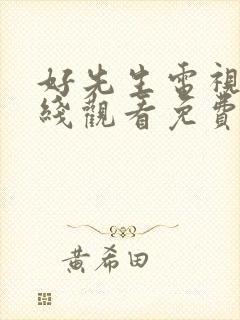 好先生電視
綫觀看免費
黃希田